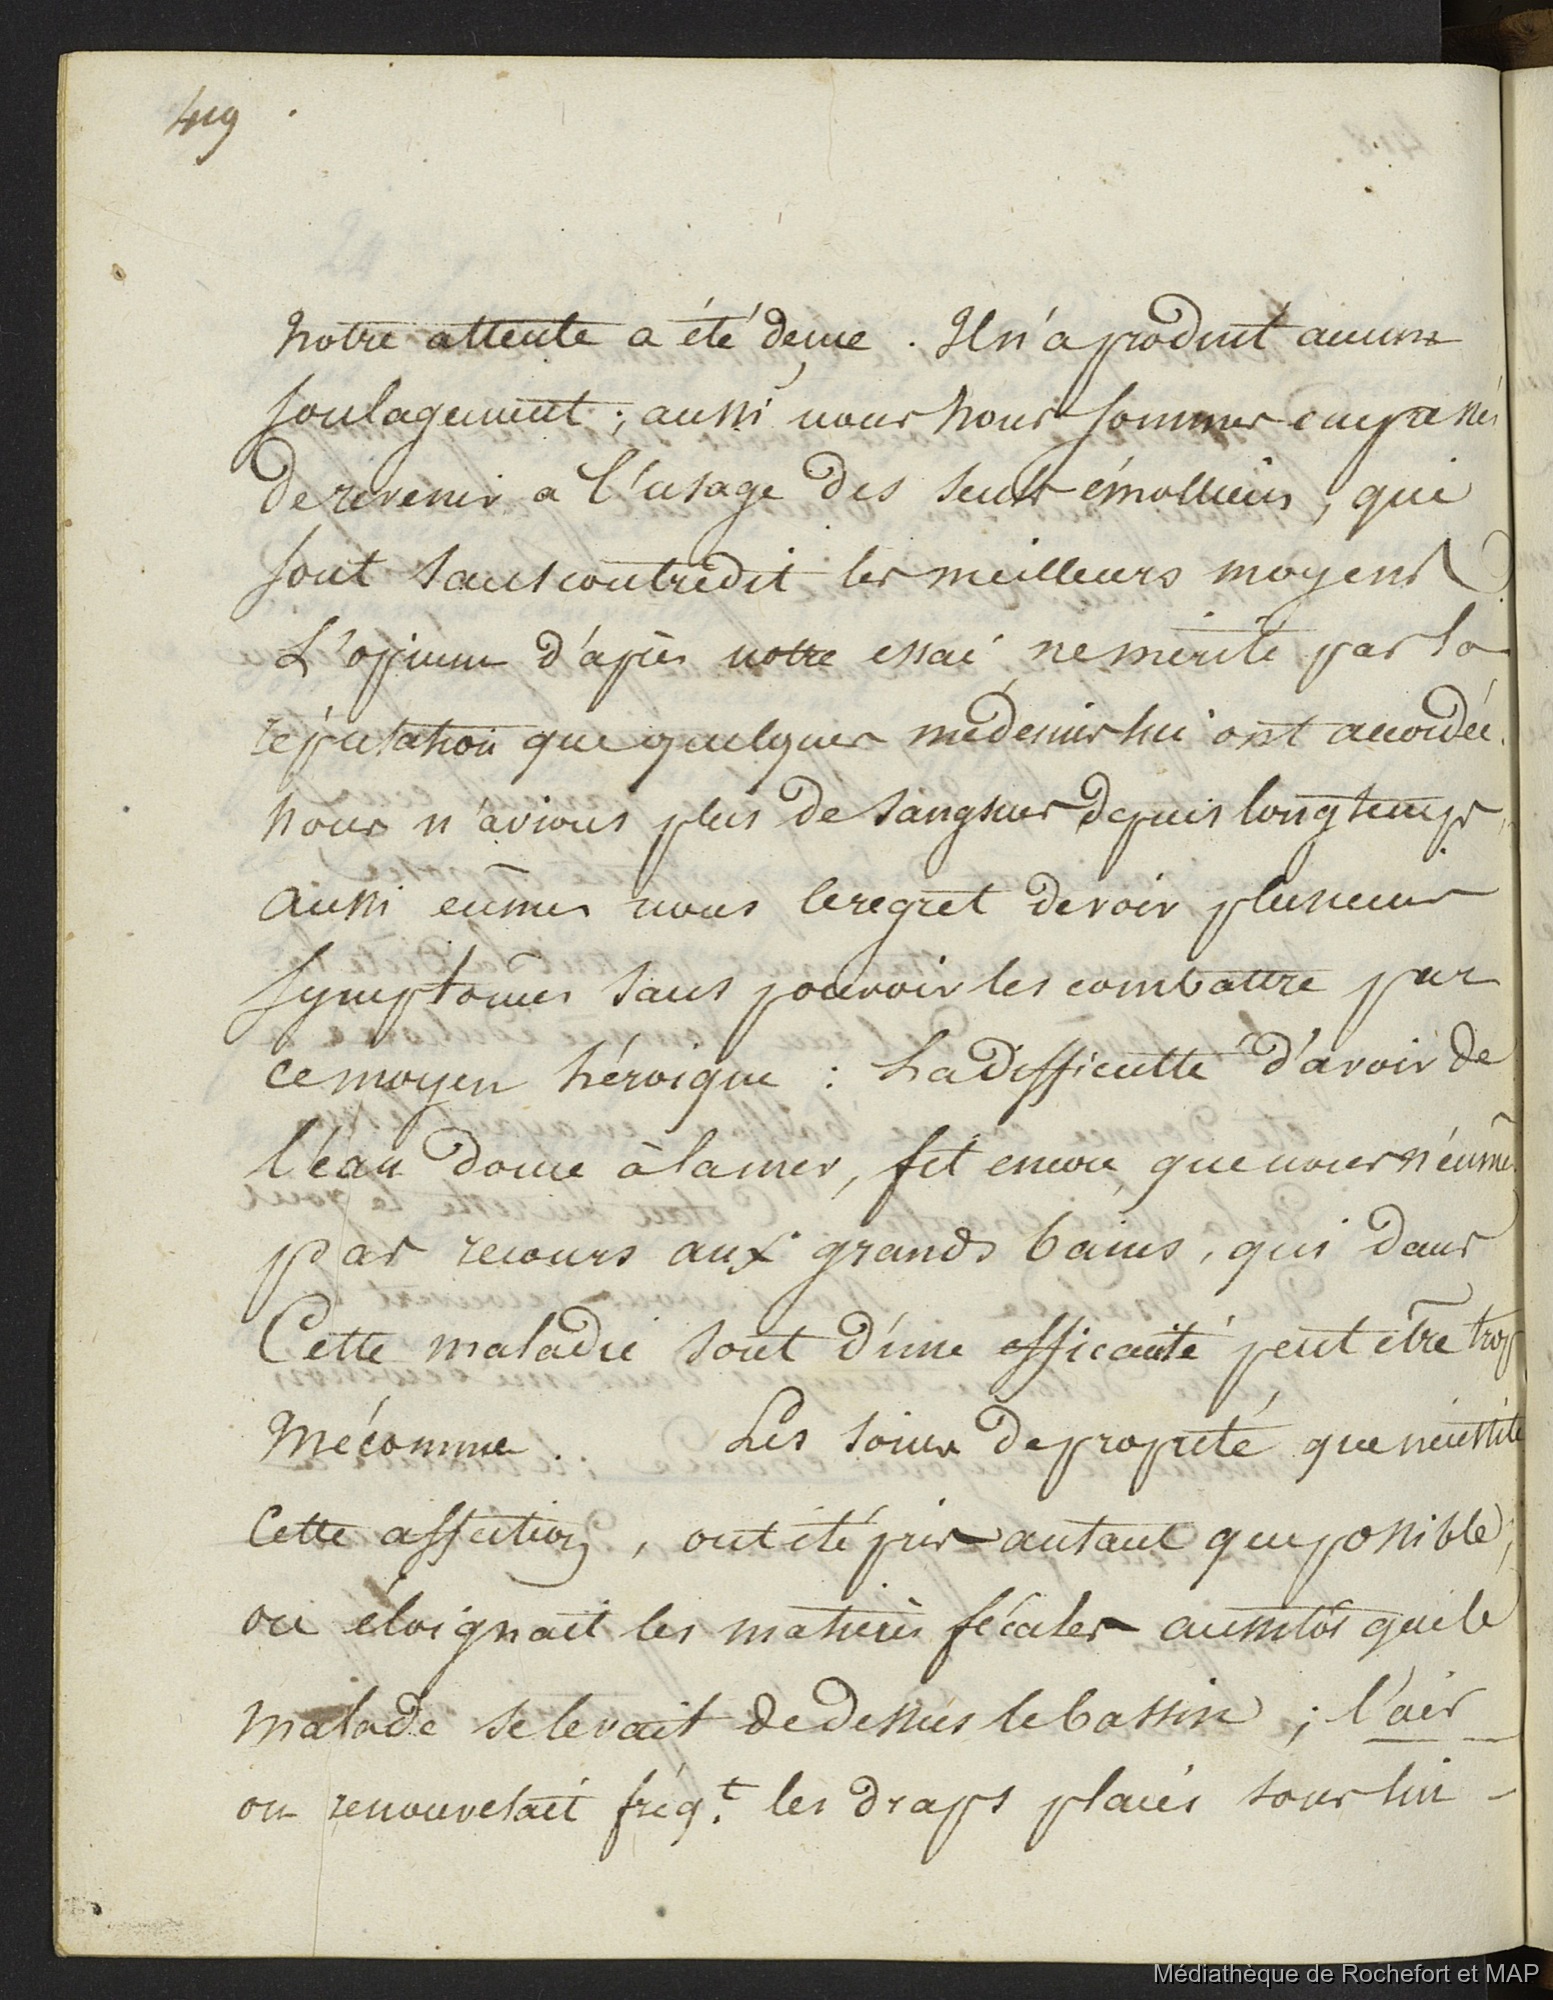 419 .
notre attente a été deçue . Il n'a produit aucun
soulagement ; aussi nous nous sommes empressés
de revenir a l'usage des seuls émolliens, qui
sont sans contredit les meilleurs moyens
L'opium d'après notre essai ne mérite pas la
réputation que quelques médecins lui ont accordée.
nous n'avions plus de sangsues depuis longtemps,
aussi eûmes nous le regret de voir plusieurs
symptômes sans pouvoir les combattre par
ce moyen héroique : La difficulté d'avoir de
l'éau douce à la mer, fit encore que nous n'eûmes
pas recours aux grands bains, qui dans
Cette maladie sont d'une efficacité peut être trop
méconnue . Les soins de propreté que nécessite
Cette affection, ont été pris autant que possible,
on éloignait les matières fécales aussitôt que le
malade se levait de dessus le bassin ; l'air
on renouvelait fréqt. les draps placés sous lui -
Médiathèque de Rochefort et MAP